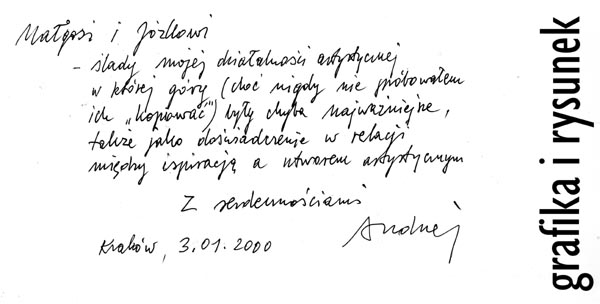 Małgosi i Józkowi
– ślady mojej działalności artystycznej
w której góry (choć nigdy nie próbowałem
ich „kopiować”) były chyba najważniejsze,
także jako doświadczenie w relacji
między inspiracją a utworem artystycznym
Z serdecznościami
Andrzej
Kraków, 3.01.2000
grafika i rysunek